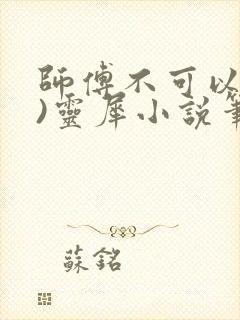 師傅不可以
)靈犀小說
蘇銘